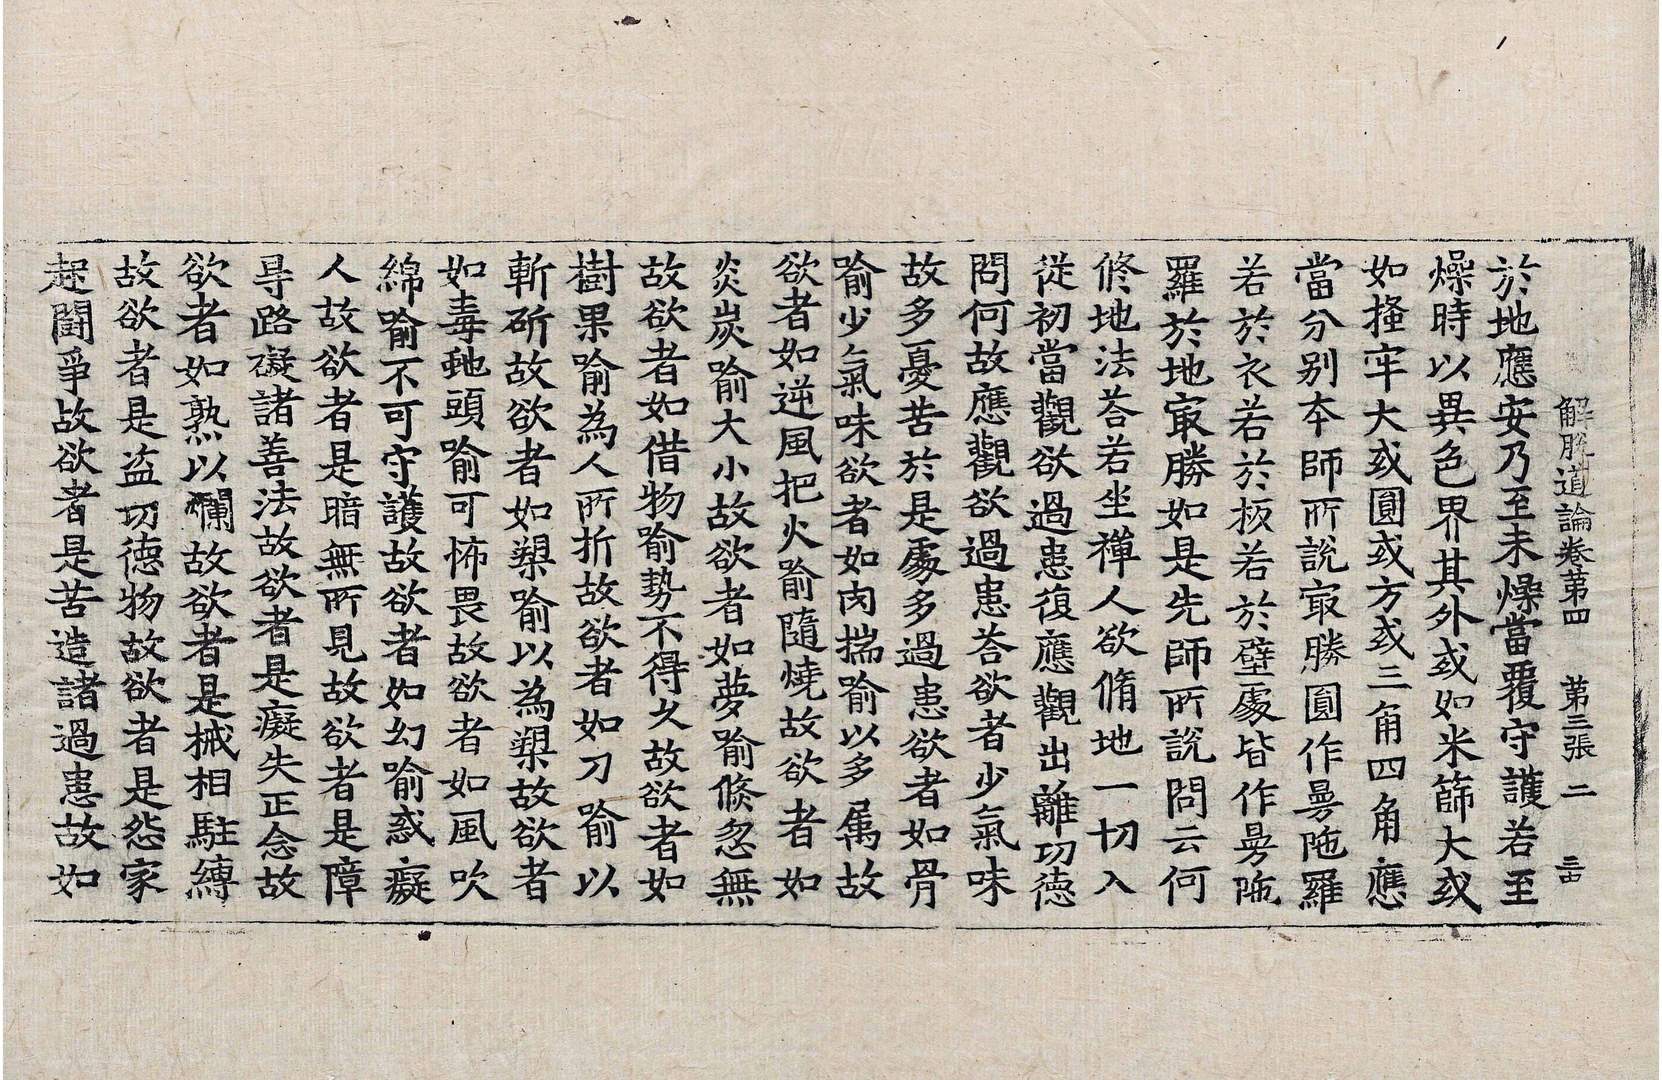 解脫道論卷第四　第三張　二
於地應安乃至未燥當覆守護若至
燥時以異色界其外或如米篩大或
如搔牢大或圓或方或三角四角應
當分别夲師所說㝡勝圓作曼陁羅
若於衣若於板若於壁處皆作曼陁
羅於地㝡勝如是先師所說問云何
修地法荅若坐禪人欲脩地一切入
從初當觀欲過患復應觀出離功德
問何故應觀欲過患荅欲者少氣味
故多憂苦於是處多過患欲者如骨
喻少氣味欲者如肉揣喻以多屬故
欲者如逆風把火喻隨燒故欲者如
炎炭喻大小故欲者如夢喻倏忽無
故欲者如借物喻勢不得久故欲者如
樹果喻為人所折故欲者如刀喻以
斬斫故欲者如槊喻以為槊故欲者
如毒虵頭喻可怖畏故欲者如風吹
綿喻不可守護故欲者如幻喻惑癡
人故欲者是暗無所見故欲者是障
㝵路礙諸善法故欲者是癡失正念故
欲者如熟以爛故欲者是械相駐縛
故欲者是盗功德物故欲者是怨家
起鬪爭故欲者是苦造諸過患故如